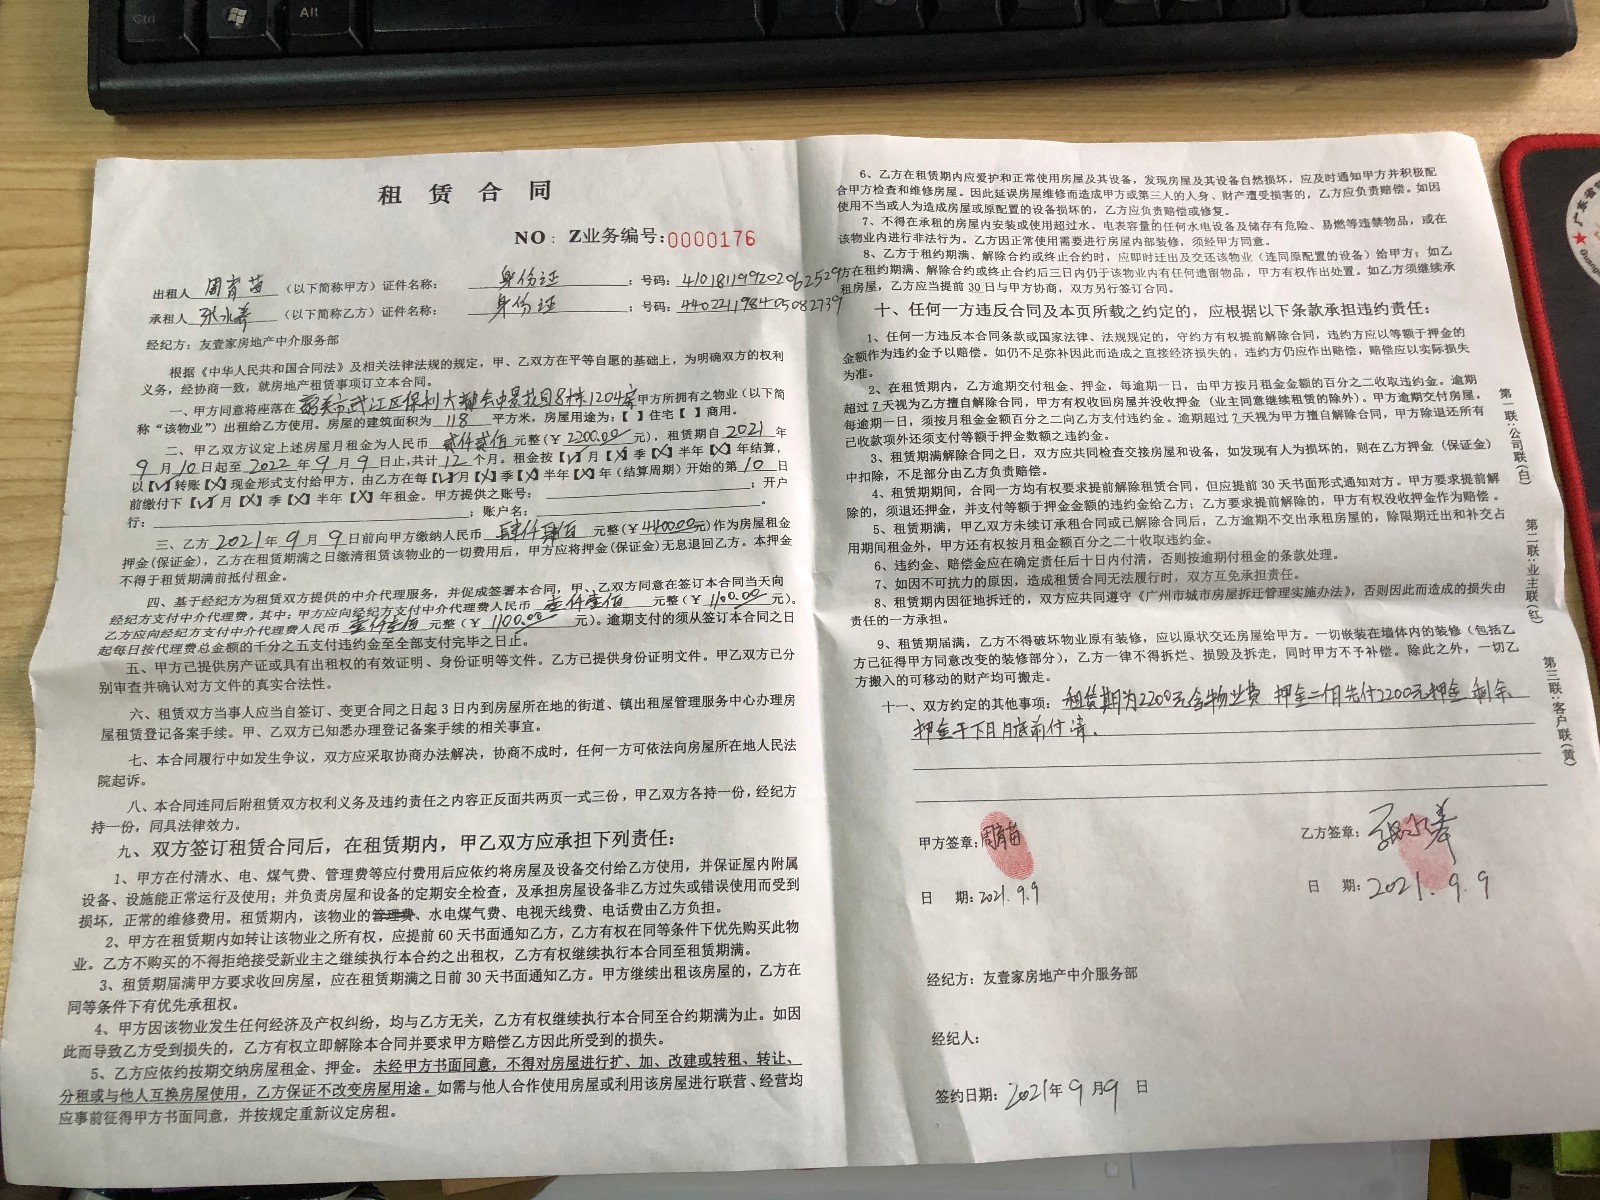 Ctrl
Alt
租 赁 合 同
NO: Z业务编号:0000176
出租人 周育苗 (以下简称甲方) 证件名称: 身份证 ; 号码: 410181199202062529
承租人 张水养 (以下简称乙方) 证件名称: 身份证 ; 号码: 440221198405082739
经纪方: 友壹家房地产中介服务部
根据《中华人民共和国合同法》及相关法律法规的规定,甲、乙双方在平等自愿的基础上,为明确双方的权利
义务,经协商一致,就房地产租赁事项订立本合同。
一、甲方同意将座落在 韶关市武江区保利大都会中景花园8栋1204房 甲方所拥有之物业(以下简
称“该物业”)出租给乙方使用。房屋的建筑面积为 118 平方米,房屋用途为:【 】住宅【 】商用。
二、甲乙双方议定上述房屋月租金为人民币 贰仟贰佰 元整(¥ 2200.00 元),租赁期自 2021 年
9 月 10 日起至 2022 年 9 月 9 日止,共计 12 个月。租金按【√】月【X】季【X】半年【X】年结算,
以【√】转账【X】现金形式支付给甲方,由乙方在每【√】月【X】季【X】半年【X】年(结算周期)开始的第 10 日
前缴付下【√】月【X】季【X】半年【X】年租金。甲方提供之账号: ; 开户
行: ; 账户名: 。
三、乙方 2021 年 9 月 9 日前向甲方缴纳人民币 肆仟肆佰 元整(¥ 4400.00元)作为房屋租金
押金(保证金),乙方在租赁期满之日缴清租赁该物业的一切费用后,甲方应将押金(保证金)无息退回乙方。本押金
不得于租赁期满前抵付租金。
四、基于经纪方为租赁双方提供的中介代理服务,并促成签署本合同,甲、乙双方同意在签订本合同当天向
经纪方支付中介代理费,其中: 甲方应向经纪方支付中介代理费人民币 壹仟壹佰 元整(¥ 1100.00 元)。
乙方应向经纪方支付中介代理费人民币 壹仟壹佰 元整(¥ 1100.00 元)。逾期支付的须从签订本合同之日
起每日按代理费总金额的千分之五支付违约金至全部支付完毕之日止。
五、甲方已提供房产证或具有出租权的有效证明、身份证明等文件。乙方已提供身份证明文件。甲乙双方已分
别审查并确认对方文件的真实合法性。
六、租赁双方当事人应当自签订、变更合同之日起 3 日内到房屋所在地的街道、镇出租屋管理服务中心办理房
屋租赁登记备案手续。甲、乙双方已知悉办理登记备案手续的相关事宜。
七、本合同履行中如发生争议,双方应采取协商办法解决,协商不成时,任何一方可依法向房屋所在地人民法
院起诉。
八、本合同连同后附租赁双方权利义务及违约责任之内容正反面共两页一式三份,甲乙双方各持一份,经纪方
持一份,同具法律效力。
九、双方签订租赁合同后,在租赁期内,甲乙双方应承担下列责任:
1、甲方在付清水、电、煤气费、管理费等应付费用后应依约将房屋及设备交付给乙方使用,并保证屋内附属
设备、设施能正常运行及使用;并负责房屋和设备的定期安全检查,及承担房屋设备非乙方过失或错误使用而受到
损坏,正常的维修费用。租赁期内,该物业的管理费、水电煤气费、电视天线费、电话费由乙方负担。
2、甲方在租赁期内如转让该物业之所有权,应提前 60 天书面通知乙方,乙方有权在同等条件下优先购买此物
业。乙方不购买的不得拒绝接受新业主之继续执行本合约之出租权,乙方有权继续执行本合同至租赁期满。
3、租赁期届满甲方要求收回房屋,应在租赁期满之日前 30 天书面通知乙方。甲方继续出租该房屋的,乙方在
同等条件下有优先承租权。
4、甲方因该物业发生任何经济及产权纠纷,均与乙方无关,乙方有权继续执行本合同至合约期满为止。如因
此而导致乙方受到损失的,乙方有权立即解除本合同并要求甲方赔偿乙方因此所受到的损失。
5、乙方应依约按期交纳房屋租金、押金。未经甲方书面同意,不得对房屋进行扩、加、改建或转租、转让、
分租或与他人互换房屋使用,乙方保证不改变房屋用途。如需与他人合作使用房屋或利用该房屋进行联营、经营均
应事前征得甲方书面同意,并按规定重新议定房租。
6、乙方在租赁期内应爱护和正常使用房屋及其设备,发现房屋及其设备自然损坏,应及时通知甲方并积极配
合甲方检查和维修房屋。因此延误房屋维修而造成甲方或第三人的人身、财产遭受损害的,乙方应负责赔偿。如因
使用不当或人为造成房屋或原配置的设备损坏的,乙方应负责赔偿或修复。
7、不得在承租的房屋内安装或使用超过水、电表容量的任何水电设备及储存有危险、易燃等违禁物品,或在
该物业内进行非法行为。乙方因正常使用需要进行房屋内部装修,须经甲方同意。
8、乙方于租约期满、解除合约或终止合约时,应即时迁出及交还该物业(连同原配置的设备)给甲方;如乙
方在租约期满、解除合约或终止合约后三日内仍于该物业内有任何遗留物品,甲方有权作出处置。如乙方须继续承
租房屋,乙方应当提前 30 日与甲方协商,双方另行签订合同。
十、任何一方违反合同及本页所载之约定的,应根据以下条款承担违约责任:
1、任何一方违反本合同条款或国家法律、法规规定的,守约方有权提前解除合同,违约方应以等额于押金的
金额作为违约金予以赔偿。如仍不足弥补因此而造成之直接经济损失的,违约方仍应作出赔偿,赔偿应以实际损失
为准。
2、在租赁期内,乙方逾期交付租金、押金,每逾期一日,由甲方按月租金金额的百分之二收取违约金。逾期
超过 7 天视为乙方擅自解除合同,甲方有权收回房屋并没收押金 (业主同意继续租赁的除外)。甲方逾期交付房屋,
每逾期一日,须按月租金金额百分之二向乙方支付违约金。逾期超过 7 天视为甲方擅自解除合同,甲方除退还所有
已收款项外还须支付等额于押金数额之违约金。
3、租赁期满解除合同之日,双方应共同检查交接房屋和设备,如发现有人为损坏的,则在乙方押金(保证金)
中扣除,不足部分由乙方负责赔偿。
4、租赁期期间,合同一方均有权要求提前解除租赁合同,但应提前 30 天书面形式通知对方。甲方要求提前解
除的,须退还押金,并支付等额于押金金额的违约金给乙方;乙方要求提前解除的,甲方有权没收押金作为赔偿 。
5、租赁期满,甲乙双方未续订承租合同或已解除合同后,乙方逾期不交出承租房屋的,除限期迁出和补交占
用期间租金外,甲方还有权按月租金额百分之二十收取违约金。
6、违约金、赔偿金应在确定责任后十日内付清,否则按逾期付租金的条款处理。
7、如因不可抗力的原因,造成租赁合同无法履行时,双方互免承担责任。
8、租赁期内因征地拆迁的,双方应共同遵守《广州市城市房屋拆迁管理实施办法》,否则因此而造成的损失由
责任的一方承担。
9、租赁期届满,乙方不得破坏物业原有装修,应以原状交还房屋给甲方。一切嵌装在墙体内的装修(包括乙
方已征得甲方同意改变的装修部分),乙方一律不得拆烂、损毁及拆走,同时甲方不予补偿。除此之外,一切乙
方搬入的可移动的财产均可搬走。
十一、双方约定的其他事项: 租赁期为2200元含物业费 押金二个月先付2200元押金 剩余
押金于下月月底前付清.
甲方签章: 周育苗
乙方签章: 张水养
日 期: 2021.9.9
日 期: 2021.9.9
经纪方: 友壹家房地产中介服务部
经纪人:
签约日期: 2021年 9 月 9 日
第一联:公司联(白)
第二联:业主联(红)
第三联:客户联(黄)